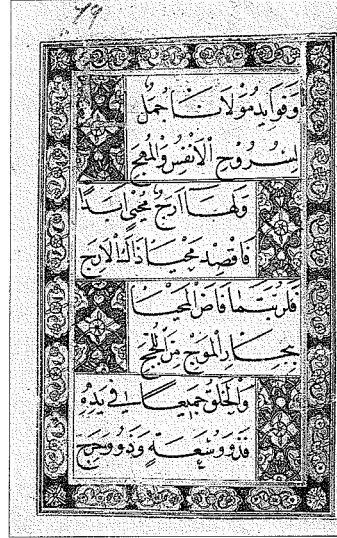 ٧٩
وَفَوَائِدُ مَوْلَانَا جُمَلٌ
لِسُرُوحِ الْأَنْفُسِ وَالْمُهَجِ
وَلَهَا أَرَجٌ مُحْيٍ أَبَدًا
فَاقْصِدْ مَحْيَا ذَاكَ الْأَرَجِ
فَلَرُبَّتَمَا فَاضَ الْمَحْيَا
بِبِحَارِ الْمَوْجِ مِنَ اللُّجَجِ
وَالْخَلْقُ جَمِيعًا فِي يَدِهِ
فَذَوُو سَعَةٍ وَذَوُو حَرَجِ